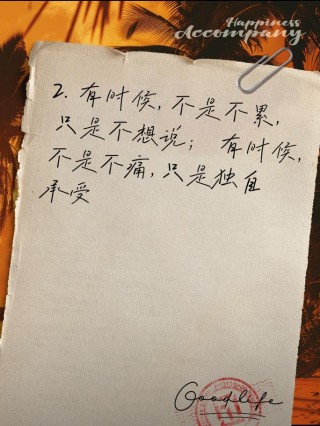 Happiness
Accompany
2. 有时候, 不是不累,
只是不想说; 有时候,
不是不痛, 只是独自
承受
Goodlife